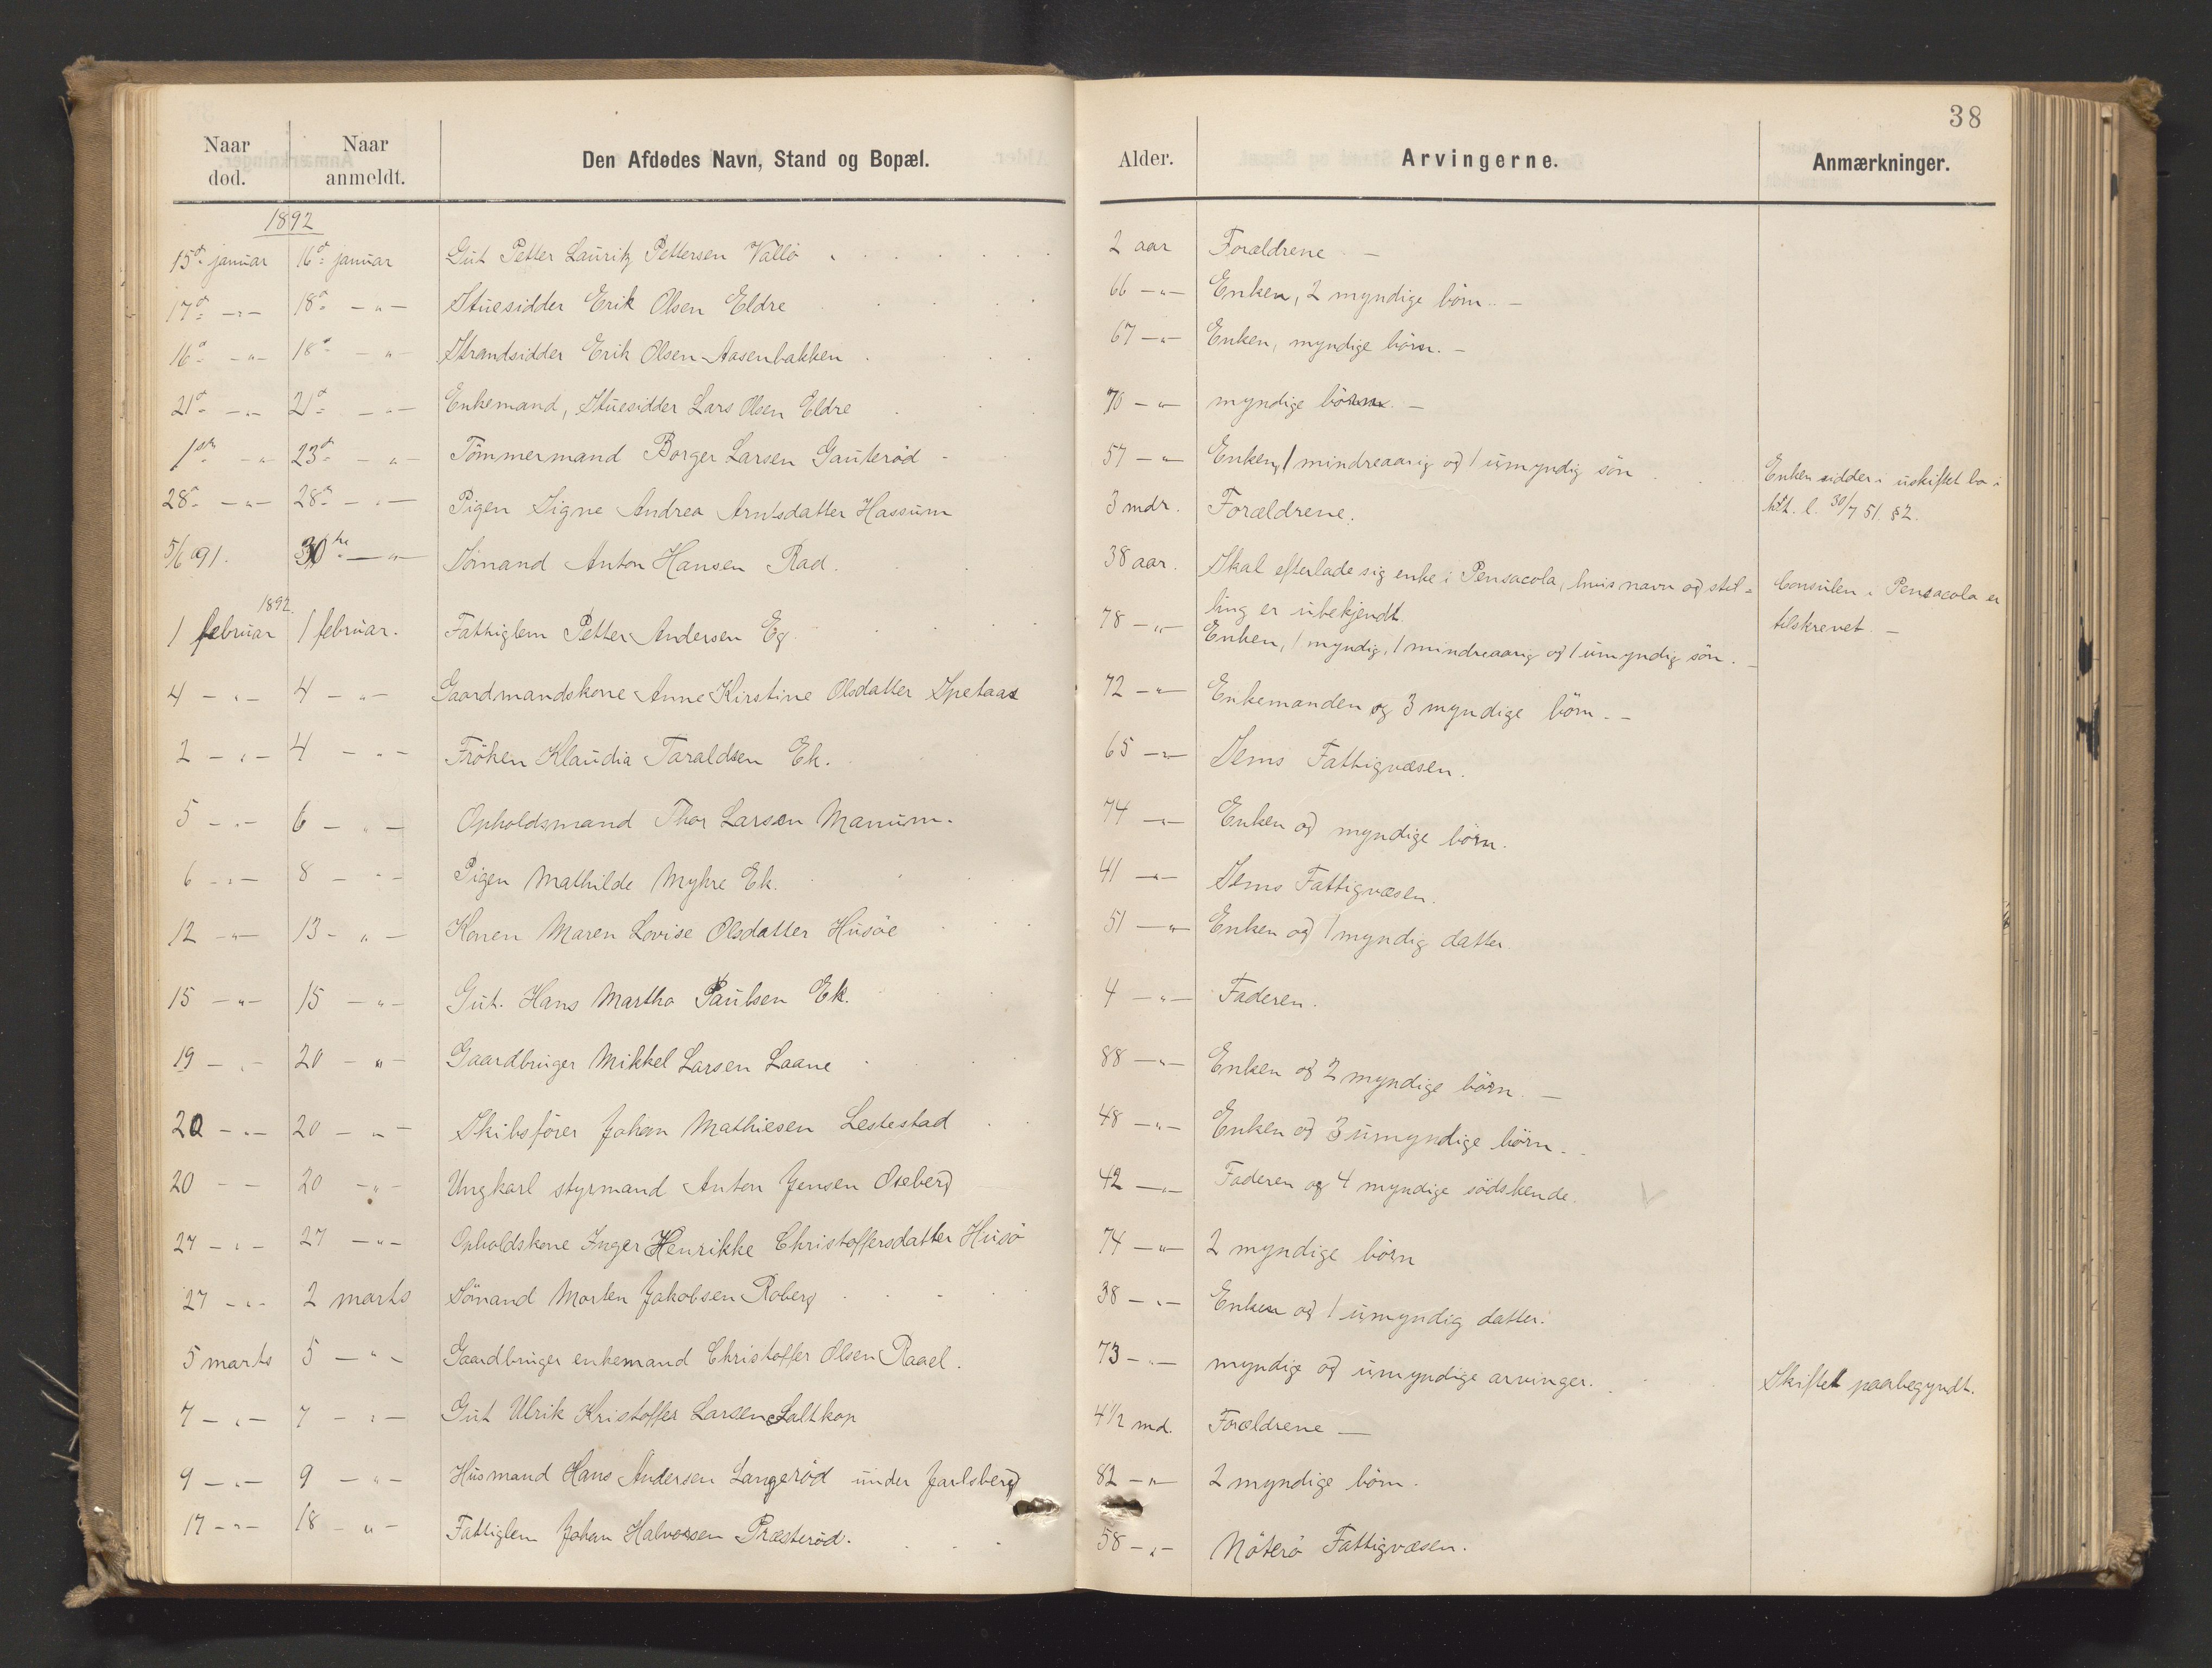 38
Naar død. Naar anmeldt. Den Afdødes Navn, Stand og Bopæl. Alder. Arvingerne. Anmærkninger.
1892
15d. januar 16d. januar Gut Petter Lauritz Pettersen Vallö 2 aar Forældrene –
17d. – " – 18d. – " – Stuesidder Erik Olsen Eldre 66 – " – Enken, 2 myndige börn. –
16d. – " – 18d. – " – Strandsidder Erik Olsen Aasenbakken 67 – " – Enken, myndige börn. –
21d. – " – 21d. – " – Enkemand, Stuesidder Lars Olsen Eldre 70 – " – myndige börn. –
1ste – " – 23d. – " – Tömmermand Borger Larsen Gauteröd 57 – " – Enken, 1 mindreaarig og 1 umyndig sön Enken sidder i uskiftet bo i
28d. – " – 28d. – " – Pigen Signe Andrea Arntsdatter Hassum 3 mdr. Forældrene. hht. l. 30/7 51. § 2.
5/6 91. 30te – " – Sömand Anton Hansen Rad. 38 aar. Skal efterlade sig enke i Pensacola, hvis navn og stil= Consulen i Pensacola er
ling er ubekjendt. tilskrevet. –
1892.
1 februar 1 februar. Fattiglem Petter Andersen Eg 78 – " – Enken, 1 myndig, 1 mindreaarig og 1 umyndig sön. –
4 – " – 4 – " – Gaardmandskone Anne Kirstine Olsdatter Spetaas 72 – " – Enkemanden og 3 myndige börn. –
2 – " – 4 – " – Fröken Klaudia Taraldsen Ek. 65 – " – Sems Fattigvæsen.
5 – " – 6 – " – Opholdsmand Thor Larsen Manum. 74 – " – Enken og myndige börn.
6 – " – 8 – " – Pigen Mathilde Myhre Ek. 41 – " – Sems Fattigvæsen.
12 – " – 13 – " – Konen Maren Lovise Olsdatter Husöe 51 – " – Enken og 1 myndig datter.
15 – " – 15 – " – Gut. Hans Martho Paulsen Ek. 4 – " – Faderen.
19 – " – 20 – " – Gaardbruger Mikkel Larsen Laane 88 – " – Enken og 2 myndige börn. –
20 – " – 20 – " – Skibsförer Johan Mathiesen Lestestad 48 – " – Enken og 3 umyndige börn. –
20 – – 20 – " – Ungkarl styrmand Anton Jensen Oseberg 42 – " – Faderen og 4 myndige södskende.
27 – " – 27 – " – Opholdskone Inger Henrikke Christoffersdatter Husö 74 – " – 2 myndige börn
27 – " – 2 marts Sömand Morten Jakobsen Roberg 38 – " – Enken og 1 umyndig datter.
5 marts 5 – " – Gaardbruger enkemand Christoffer Olsen Raael. 73 – " – myndige og umyndige arvinger. Skiftet paabegyndt.
7 – " – 7 – " – Gut Ulrik Kristoffer Larsen Saltkop 4 1/2 md. Forældrene –
9 – " – 9 – " – Husmand Hans Andersen Langeröd under Jarlsberg 82 – " – 2 myndige börn.
17 – " – 18 – " – Fattiglem Johan Halvorsen Præsteröd. 58 – " – Nöterö Fattigvæsen.